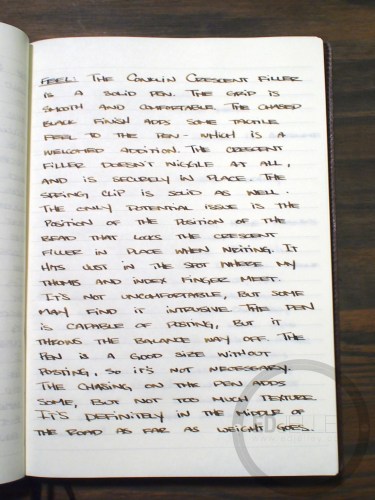 FEEL: THE CONKLIN CRESCENT FILLER
IS A SOLID PEN. THE GRIP IS
SMOOTH AND COMFORTABLE. THE CHASED
BLACK FINISH ADDS SOME TACTILE
FEEL TO THE PEN - WHICH IS A
WELCOMED ADDITION. THE CRESCENT
FILLER DOESN'T WIGGLE AT ALL,
AND IS SECURELY IN PLACE. THE
SPRING CLIP IS SOLID AS WELL.
THE ONLY POTENTIAL ISSUE IS THE
POSITION OF THE POSITION OF THE
BEAD THAT LOCKS THE CRESCENT
FILLER IN PLACE WHEN WRITING. IT
HITS JUST IN THE SPOT WHERE MY
THUMB AND INDEX FINGER MEET.
IT'S NOT UNCOMFORTABLE, BUT SOME
MAY FIND IT INTRUSIVE. THE PEN
IS CAPABLE OF POSTING, BUT IT
THROWS THE BALANCE WAY OFF. THE
PEN IS A GOOD SIZE WITHOUT
POSTING, SO IT'S NOT NECESSARY.
THE CHASING ON THIS PEN ADDS
SOME, BUT NOT TOO MUCH TEXTURE.
IT'S DEFINITELY IN THE MIDDLE OF
THE ROAD AS FAR AS WEIGHT GOES.